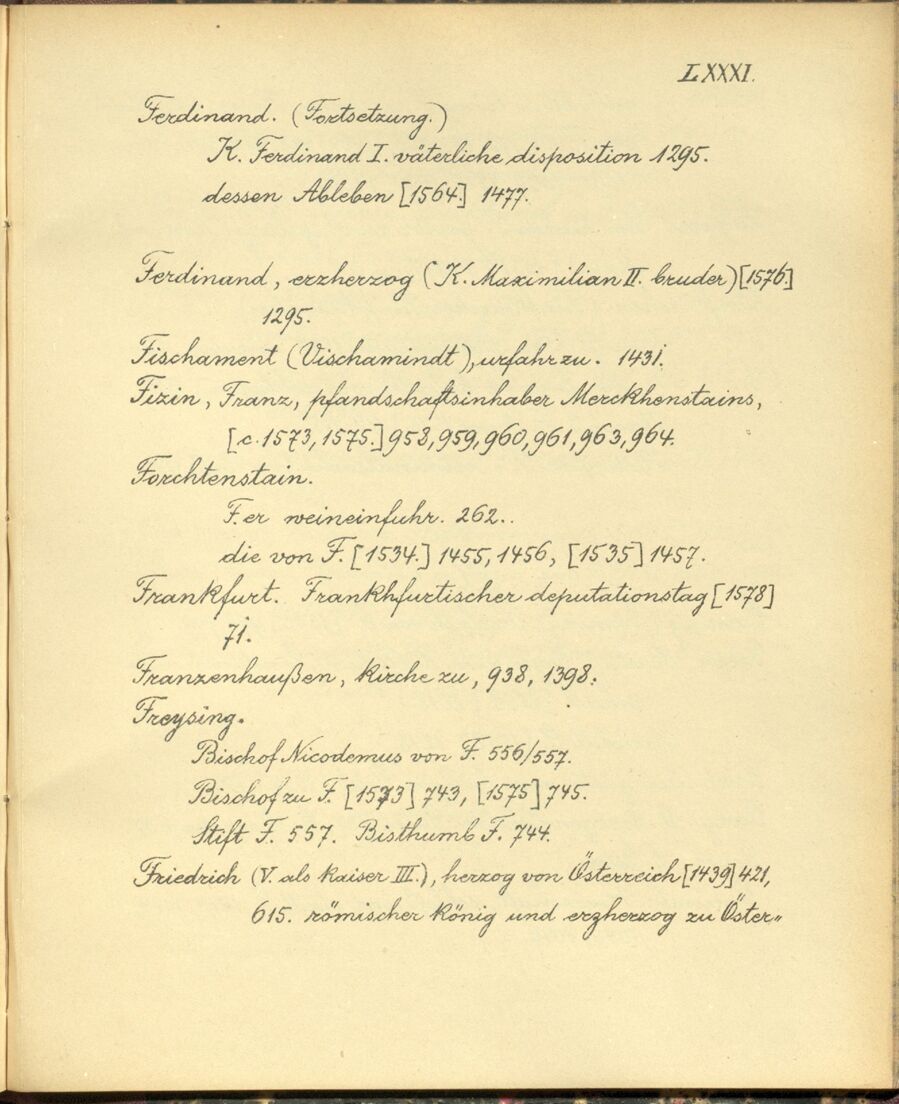 LXXXI.
Ferdinand. (Fortsetzung.)
K. Ferdinand I. väterliche disposition 1295.
dessen Ableben [1564.] 1477.
Ferdinand, erzherzog (K. Maximilian II. bruder) [1576.]
1295.
Fischament (Vischamindt), urfahr zu. 1431.
Fizin, Franz, pfandschaftsinhaber Merckhenstains,
[c. 1573, 1575.] 958, 959, 960, 961, 963, 964.
Forchtenstain.
F. er weineinfuhr. 262..
die von F. [1534.] 1455, 1456, [1535] 1457.
Frankfurt. Frankhfurtischer deputationstag [1578]
71.
Franzenhaußen, kirche zu, 938, 1398.
Freysing.
Bischof Nicodemus von F. 556/557.
Bischof zu F. [1573] 743, [1575] 745.
Stift F. 557. Bisthumb F. 744.
Friedrich (V. als kaiser III.), herzog von Österreich [1439] 421,
615. römischer könig und erzherzog zu Öster„